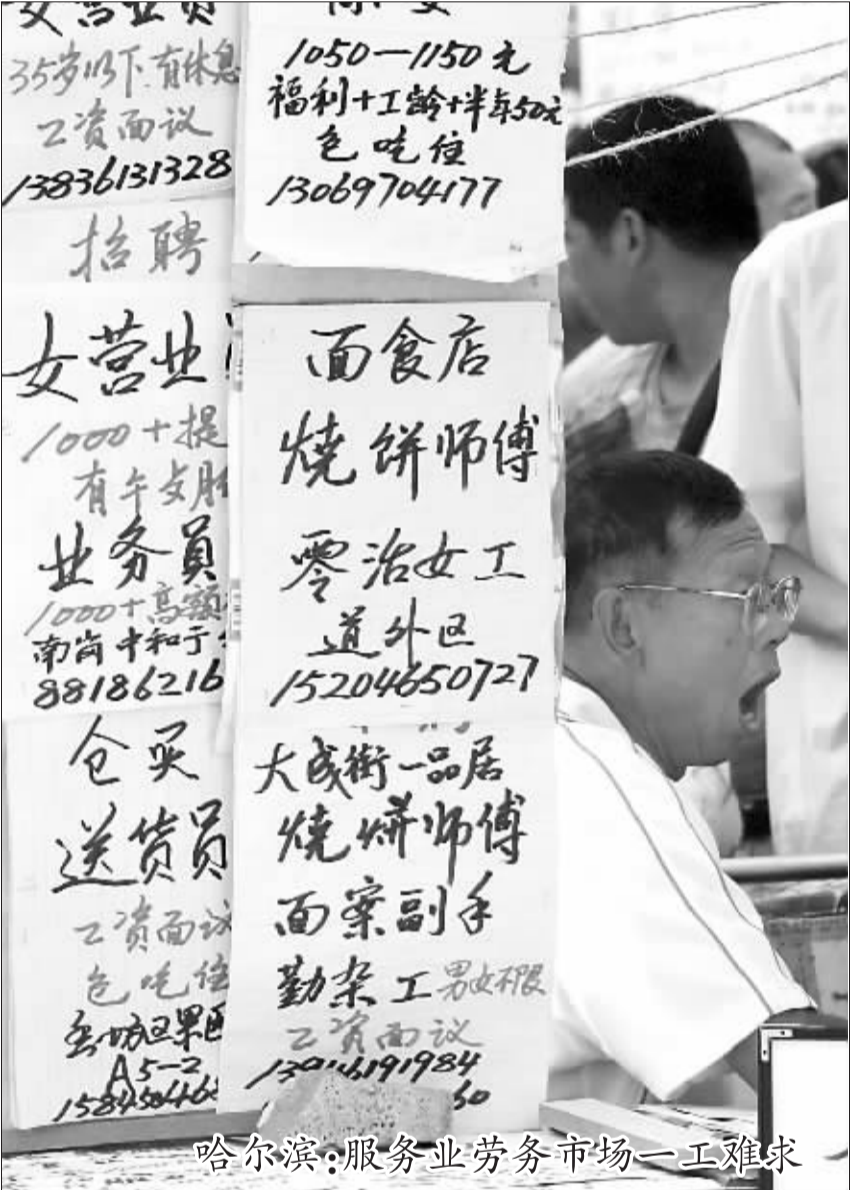 女营业员
35岁以下.有休息
工资面议
13836131328
招聘
女营业
1000+提
有午
业务员
1000+高额
南岗中和
88186216
仓买
送货员
工资面议
包吃住
A5-2
1050—1150元
福利+工龄+半年50元
包吃住
13069704177
面食店
烧饼师傅
零活女工
道外区
15204650727
大成街一品居
烧饼师傅
面案副手
勤杂工男女不限
工资面议
哈尔滨:服务业劳务市场一工难求